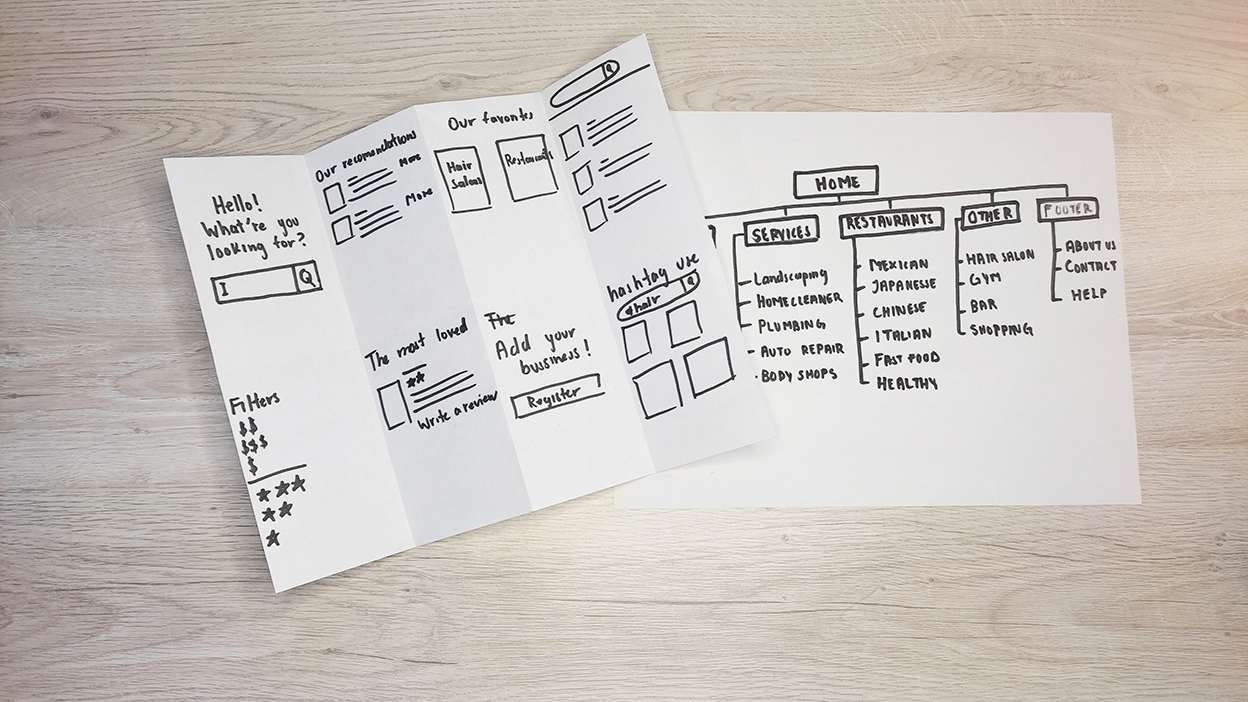 Hello!
What're you
looking for?
I
Q
Filters
$$
$$$
$
Our recomendations
More
More
The most loved
Write a review
Our favorites
Hair
Salons
Restaurants
The
Add your
bussiness!
Register
Q
hashtag use
#hair
Q
HOME
SERVICES
Landscaping
HOMECLEANER
PLUMBING
AUTO REPAIR
BODY SHOPS
RESTAURANTS
MEXICAN
JAPANESE
CHINESE
ITALIAN
FAST FOOD
HEALTHY
OTHER
HAIR SALON
GYM
BAR
SHOPPING
FOOTER
ABOUT US
CONTACT
HELP